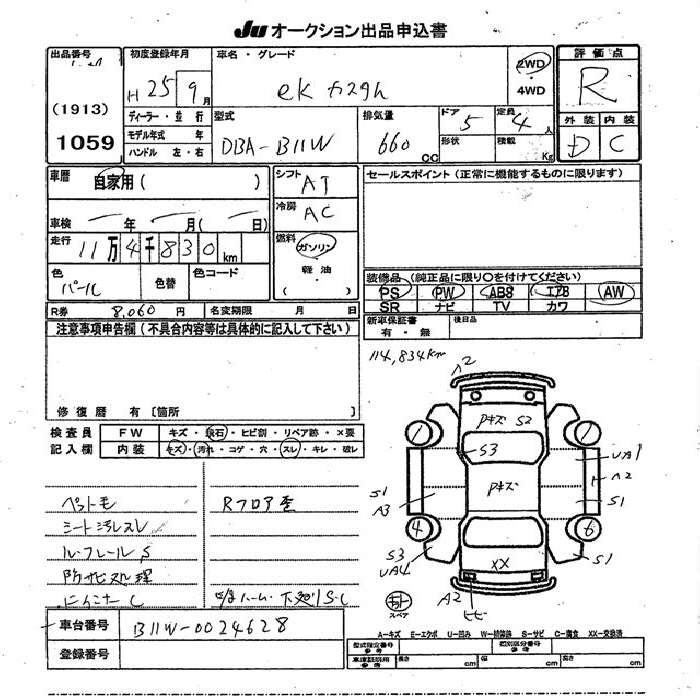 JU オークション出品申込書
出品番号
(1913)
1059
初度登録年月
H 25 9 月
車名・グレード
eK カスタム
2WD
・
4WD
評価点
R
外装 内装
D C
ディーラー・並行
モデル年式 年
ハンドル 左・右
型式
DBA-B11W
排気量
660 CC
ドア
5
形状
定員
4 人
積載
Kg
車歴
自家用 ( )
車検 年 月 ( 日)
走行
11万4千830km
色
パール
色替
色コード
シフト
AT
冷房
AC
燃料
ガソリン
軽油
( )
セールスポイント (正常に機能するものに限ります)
装備品 (純正品に限り○を付けてください)
PS PW ABS エアB AW
SR ナビ TV カワ
新車保証書
有・無
後日品
R券 8,060 円 名変期限 月 日
注意事項申告欄 (不具合内容等は具体的に記入して下さい)
修復歴 有 [箇所 ]
114,834km
検査員
記入欄
FW キズ・飛石・ヒビ割・リペア跡・×要
内装 キズ・汚れ・コゲ・穴・スレ・キレ・破レ
ペットモ
シート汚レスレ
ル-フレール S
防サビ処理
Rフロア歪
下処リS・C
A2
アキズ S2
S3
アキズ
XX
UA1
A2
S1
S1
A3
S1
4
6
S3
UA4
S1
A2
ヒビ
スペア
車台番号 B11W-0024628
登録番号
A-キズ E-エクボ U-凹み W-補修跡 S-サビ C-腐食 XX-交換済
型式指定番号
参考
類別区分番号
参考
長さ cm 幅 cm 高さ cm